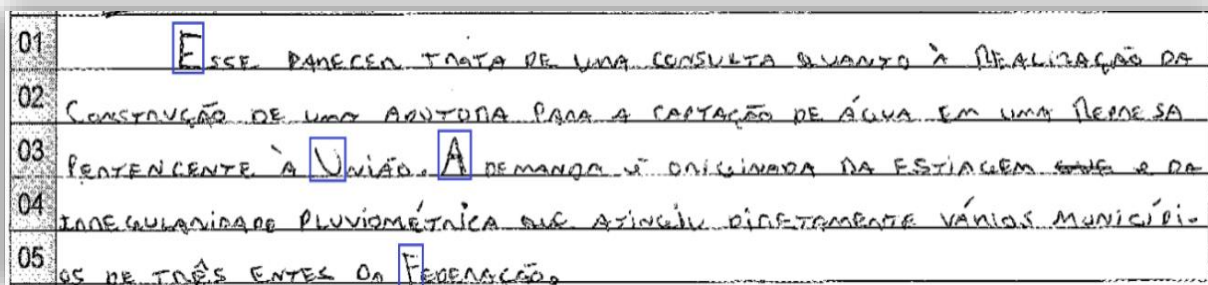 01 Esse parecer trata de uma consulta quanto à realização da
02 construção de uma adutora para a captação de água em uma represa
03 pertencente à União. A demanda é originada da estiagem que e da
04 irregularidade pluviométrica que atingiu diretamente vários municípi-
05 os de três entes da Federação.